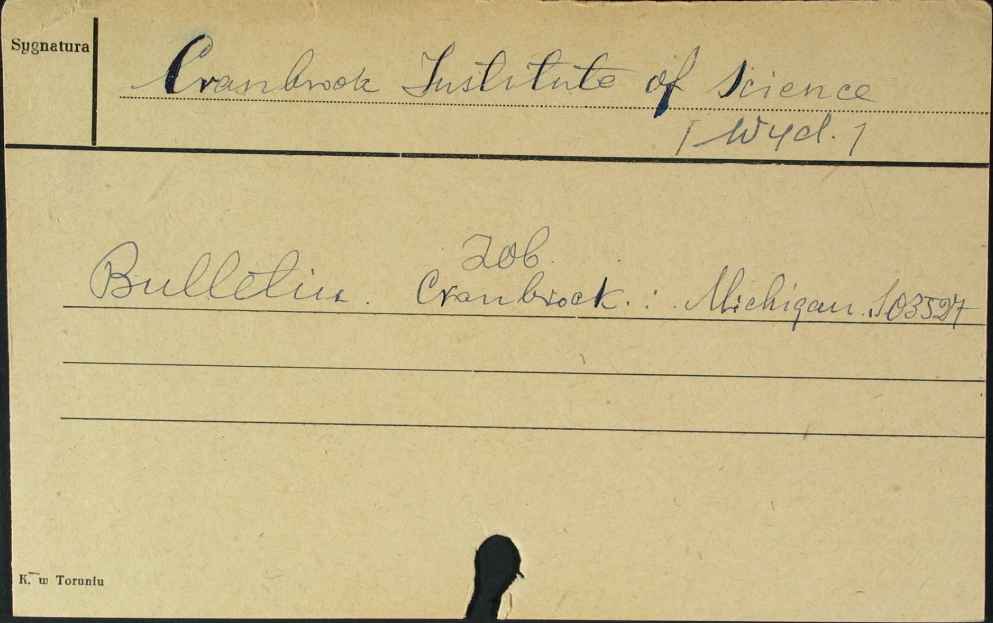 Sygnatura
Cranbrook Institute of Science
[Wyd.]
zob.
Bulletin. Cranbrook. : Michigan. S03527
K. w Toruniu